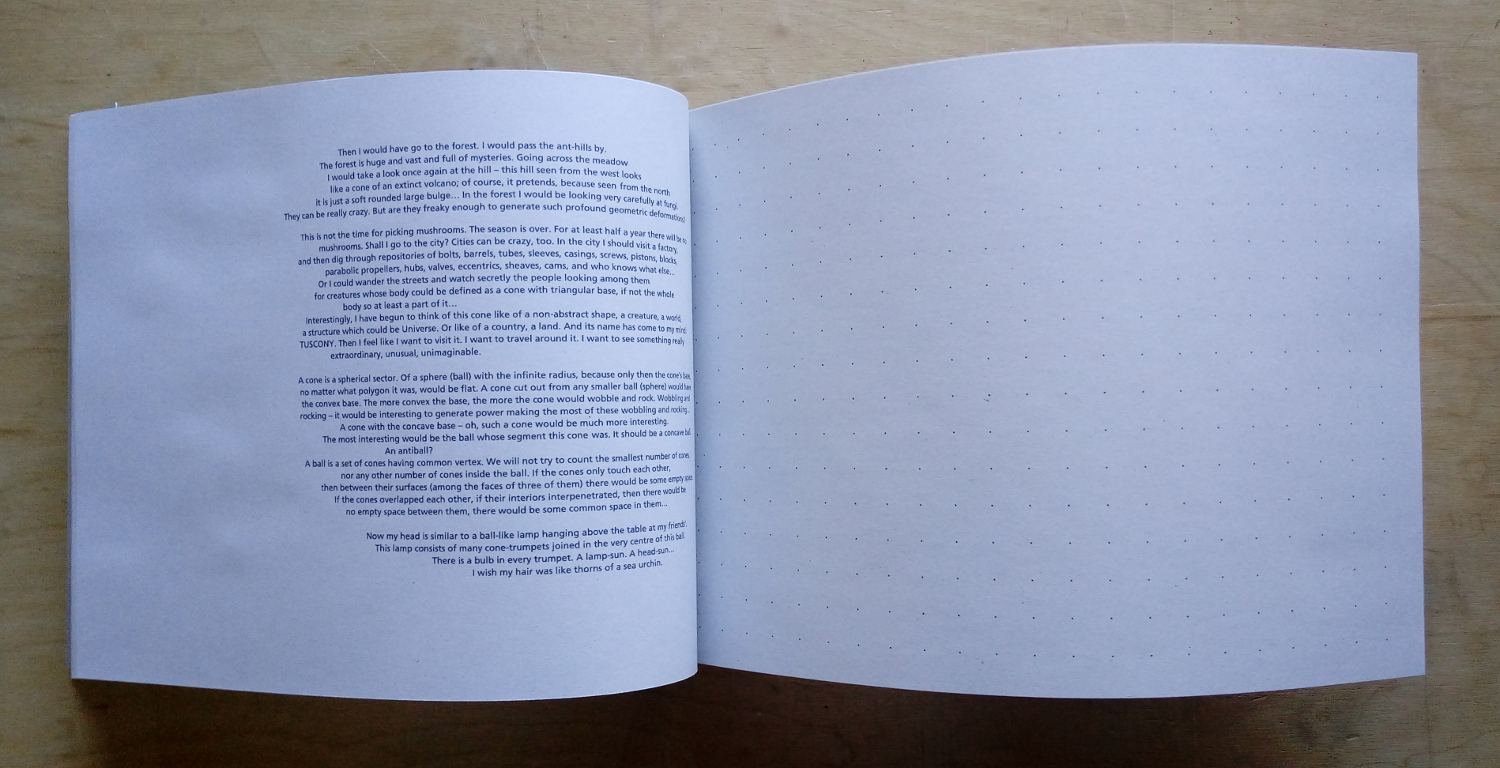 Then I would have go to the forest. I would pass the ant-hills by.
The forest is huge and vast and full of mysteries. Going across the meadow
I would take a look once again at the hill – this hill seen from the west looks
like a cone of an extinct volcano; of course, it pretends, because seen from the north
it is just a soft rounded large bulge... In the forest I would be looking very carefully at fungi.
They can be really crazy. But are they freaky enough to generate such profound geometric
This is not the time for picking mushrooms. The season is over. For at least half a year there will be no
mushrooms. Shall I go to the city? Cities can be crazy, too. In the city I should visit a factory,
and then dig through repositories of bolts, barrels, tubes, sleeves, casings, screws, pistons, blocks,
parabolic propellers, hubs, valves, eccentrics, sheaves, cams, and who knows what else...
Or I could wander the streets and watch secretly the people looking among them
for creatures whose body could be defined as a cone with triangular base, if not the whole
body so at least a part of it...
Interestingly, I have begun to think of this cone like of a non-abstract shape, a creature, a world,
a structure which could be Universe. Or like of a country, a land. And its name has come to my mind:
TUSCONY. Then I feel like I want to visit it. I want to travel around it. I want to see something really
extraordinary, unusual, unimaginable.
A cone is a spherical sector. Of a sphere (ball) with the infinite radius, because only then the cone's base,
no matter what polygon it was, would be flat. A cone cut out from any smaller ball (sphere) would have
the convex base. The more convex the base, the more the cone would wobble and rock. Wobbling and
rocking – it would be interesting to generate power making the most of these wobbling and rocking...
A cone with the concave base – oh, such a cone would be much more interesting.
The most interesting would be the ball whose segment this cone was. It should be a concave ball.
An antiball?
A ball is a set of cones having common vertex. We will not try to count the smallest number of cones,
nor any other number of cones inside the ball. If the cones only touch each other,
then between their surfaces (among the faces of three of them) there would be some empty space.
If the cones overlapped each other, if their interiors interpenetrated, then there would be
no empty space between them, there would be some common space in them...
Now my head is similar to a ball-like lamp hanging above the table at my friends'.
This lamp consists of many cone-trumpets joined in the very centre of this ball.
There is a bulb in every trumpet. A lamp-sun. A head-sun...
I wish my hair was like thorns of a sea urchin.